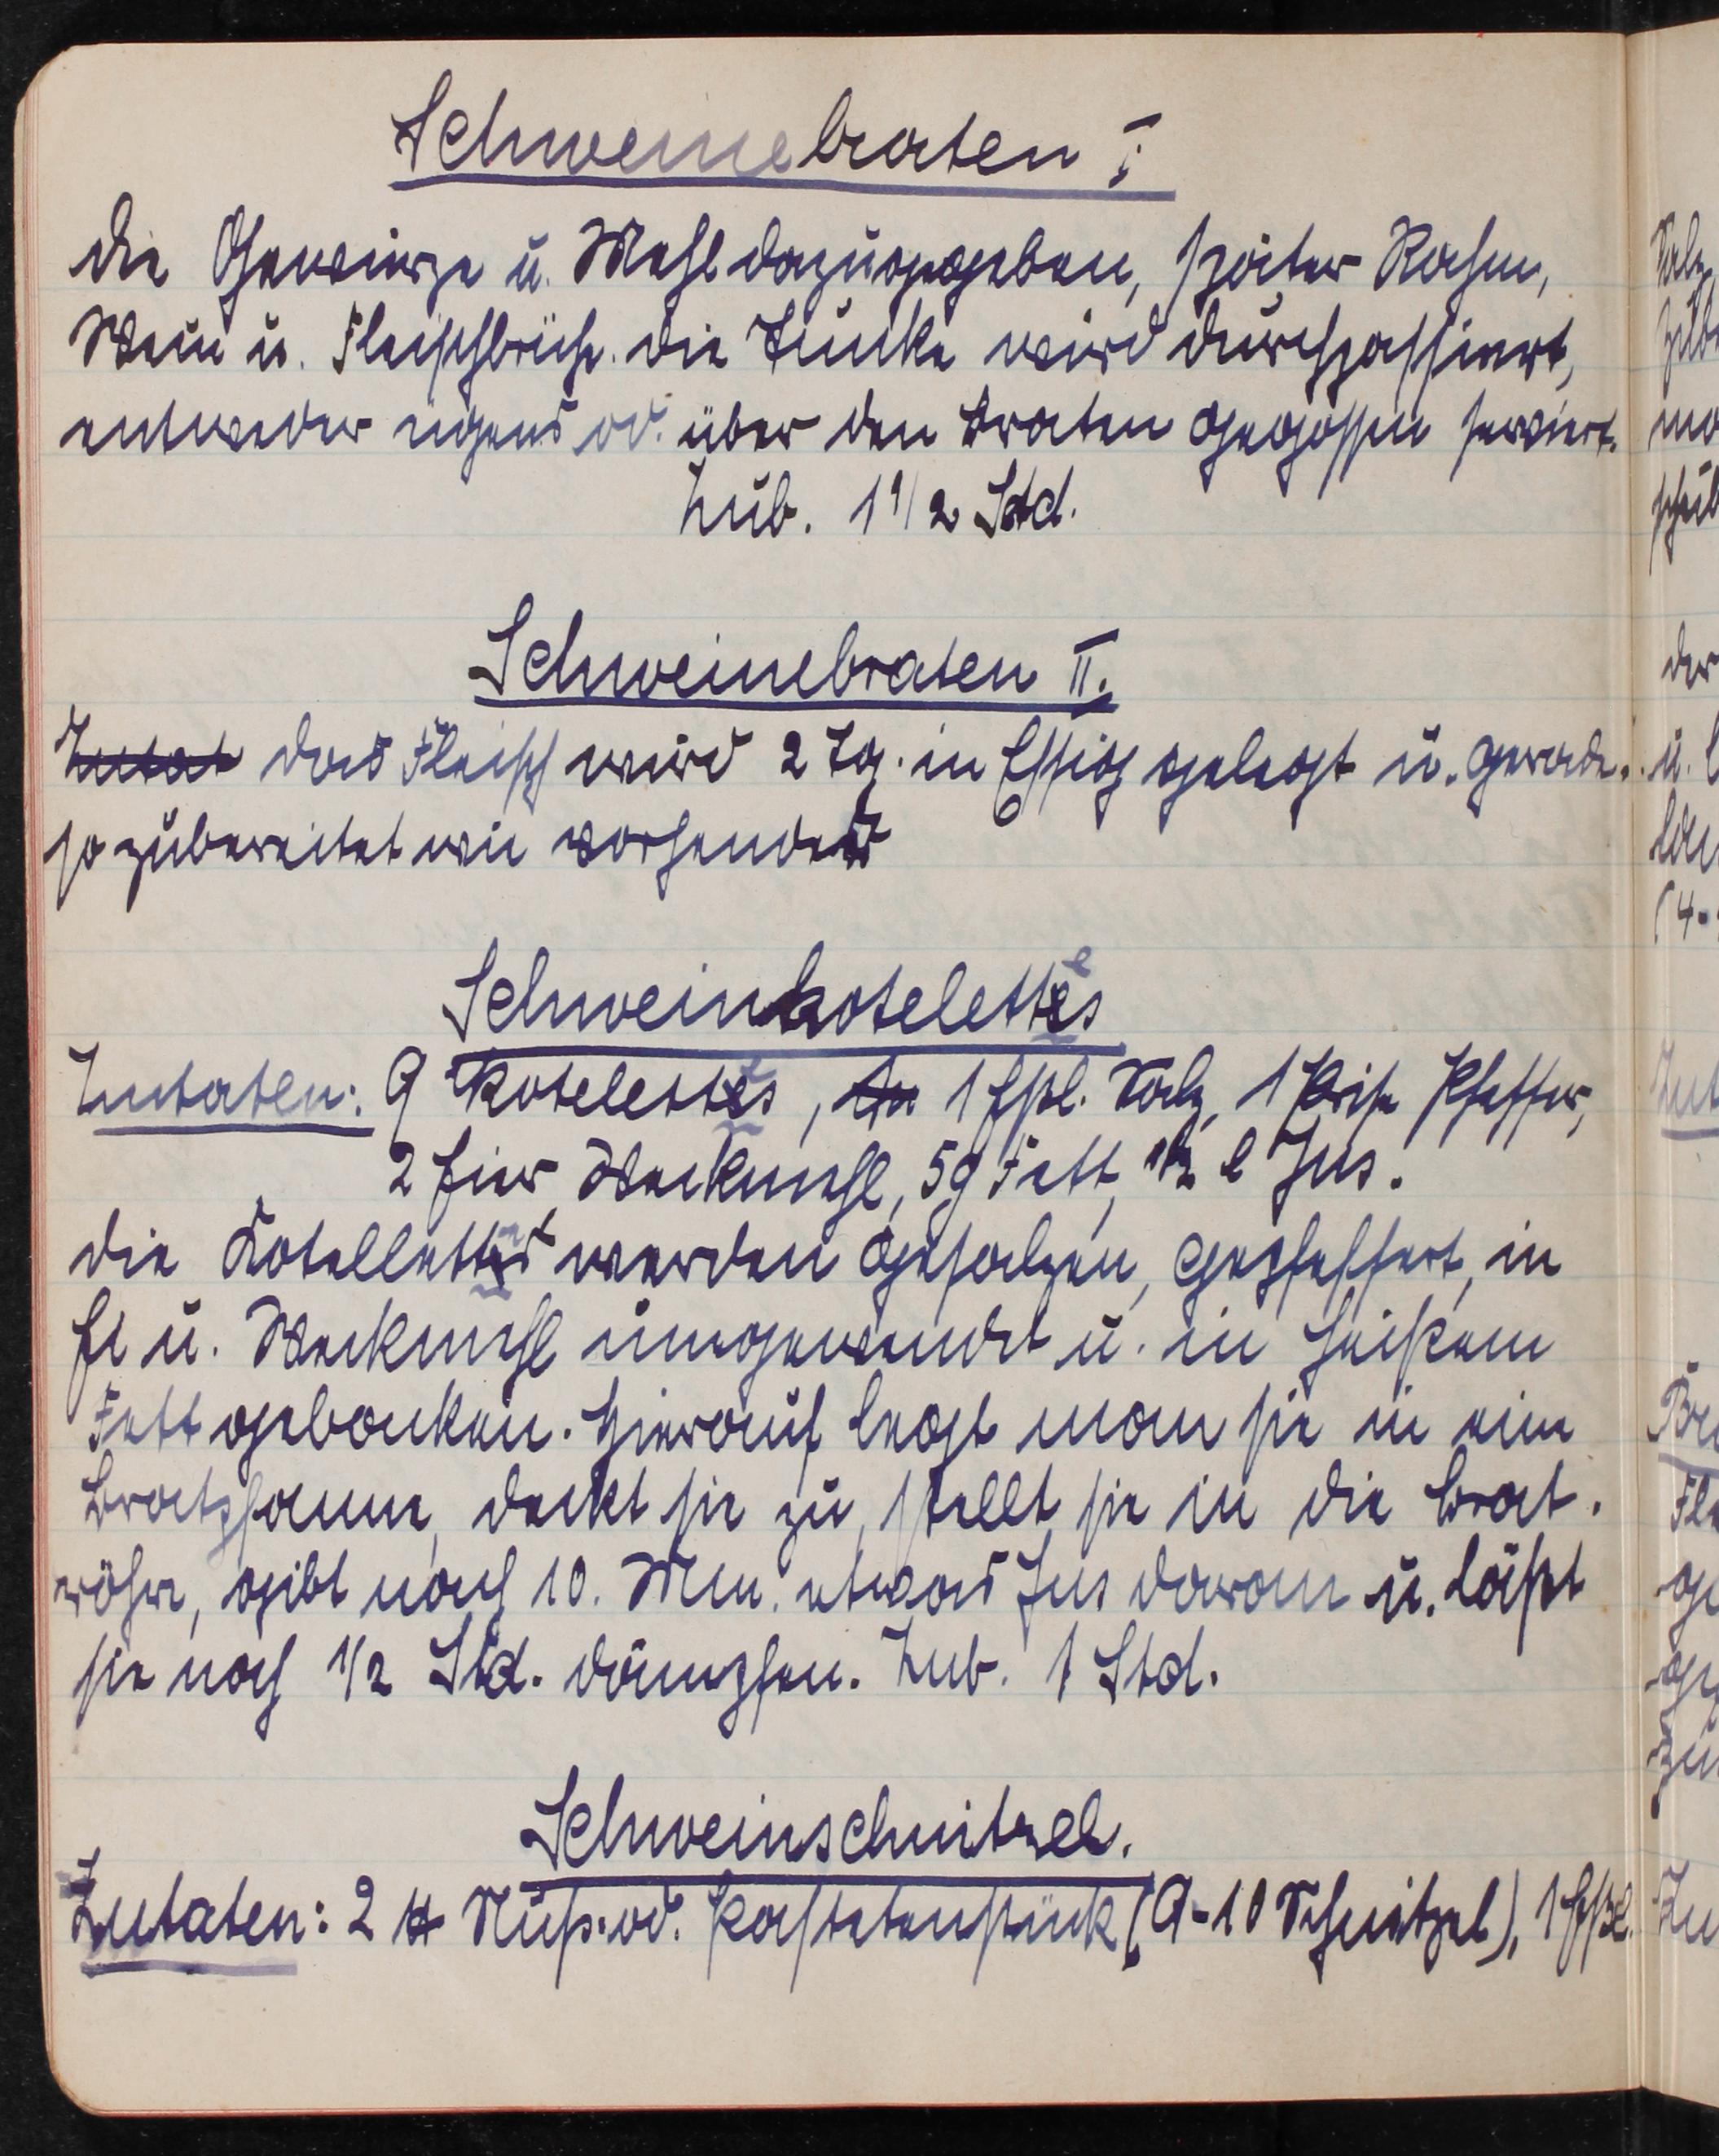 Schweinebraten I.
die Gewürze u. Mehl dazugegeben, später Rahm,
Wein u. Fleischbrühe. die Tunke wird durchpassiert,
entweder eigens od. über den Braten gegossen serviert.
Zub. 1 1/2 Std.
Schweinebraten II.
Zutat das Fleisch wird 2 Tg. in Essig gelegt u. gerade
so zubereitet wie vorhendes
Schweinkotelettes
Zutaten: 9 Kotelettes, 1 Eßl. Salz, 1 Prise Pfeffer,
2 Eier, Weckmehl, 5g Fett, 1/2 l Jus.
die Kotellettes werden gesalzen, gepfeffert, in
Ei u. Weckmehl umgewendet u. in heißem
Fett gebacken. Hierauf legt man sie in eine
Bratpfanne, deckt sie zu, stellt sie in die Brat-
röhre, gibt nach 10. Min. etwas Jus daran u. läßt
sie noch 1/2 Std. dämpfen. Zub. 1 Std.
Schweinschnitzel.
Zutaten: 2 ℔ Nuß- od. Kastetenstück (9-10 Schnitzel), 1 Eßl.